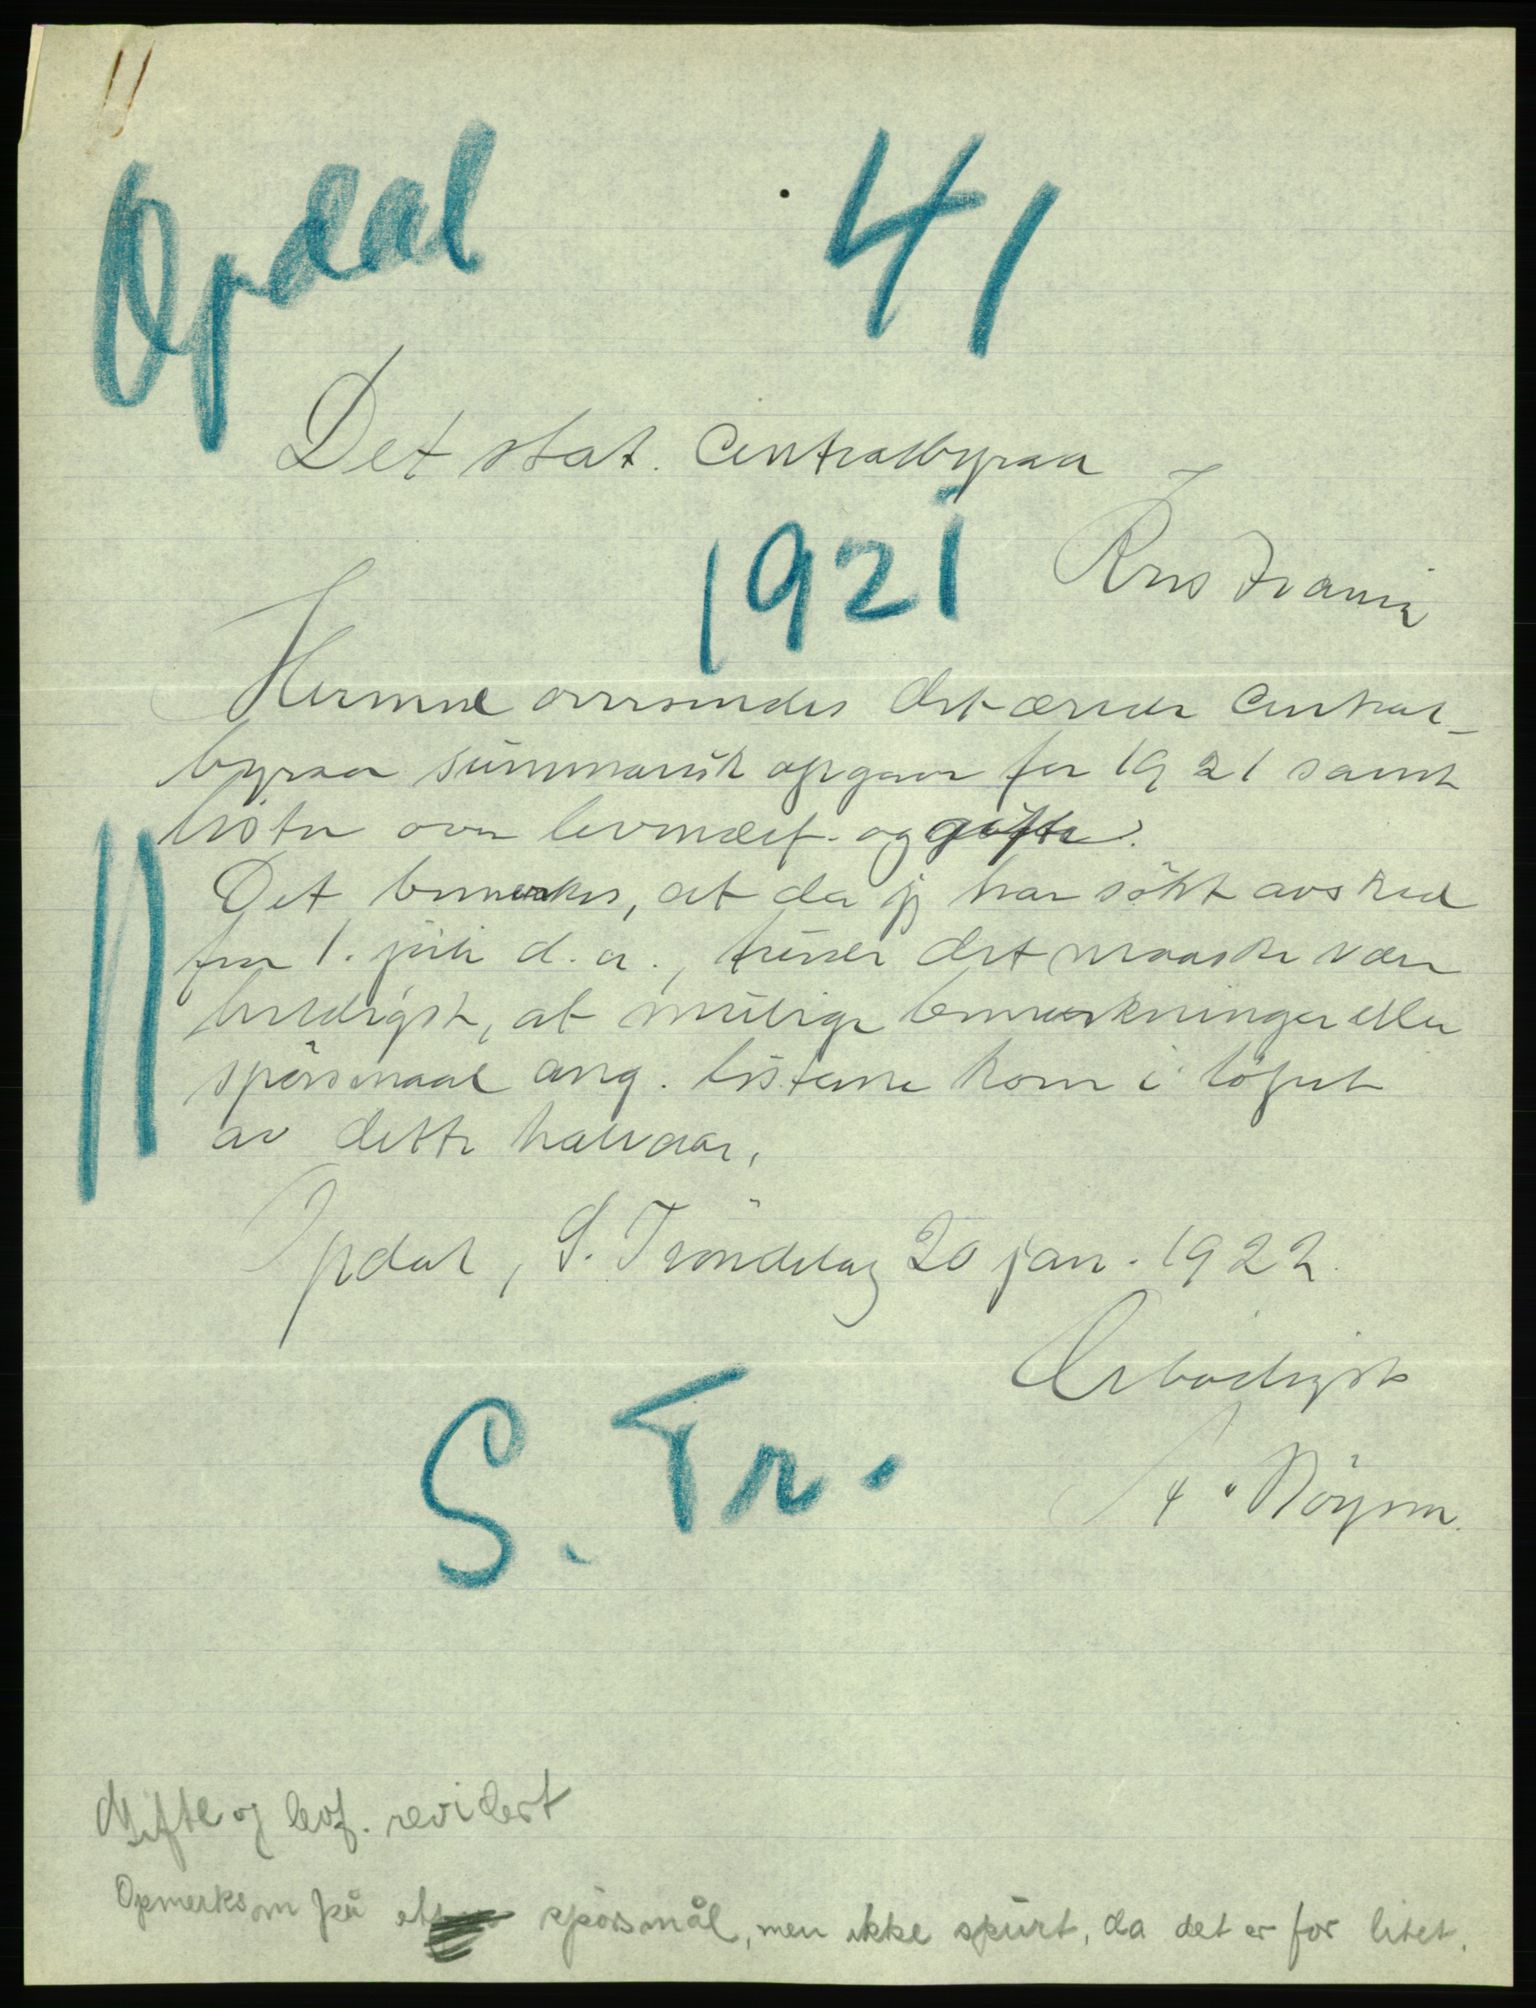 Opdal 41
Det stat. Centralbyraa
Kristiania
1921
Hermed oversendes det ærede Central-
byraa summarisk opgave for 1921 samt
lister over levendef. og gifte.
Det bemerkes, at da jeg har søkt avsked
fra 1. juli d. a., turde det maaske være
heldigst, at mulige bemerkninger eller
spörsmaal ang. listerne kom i löpet
av dette halvaar.
Opdal, S. Tröndelag 20 jan. 1922.
Ærbödigst
Röysm.
S. Tr.
Gifte og levf. revidert
Opmerksom på et spörsmål, men ikke spurt, da det er for litet.